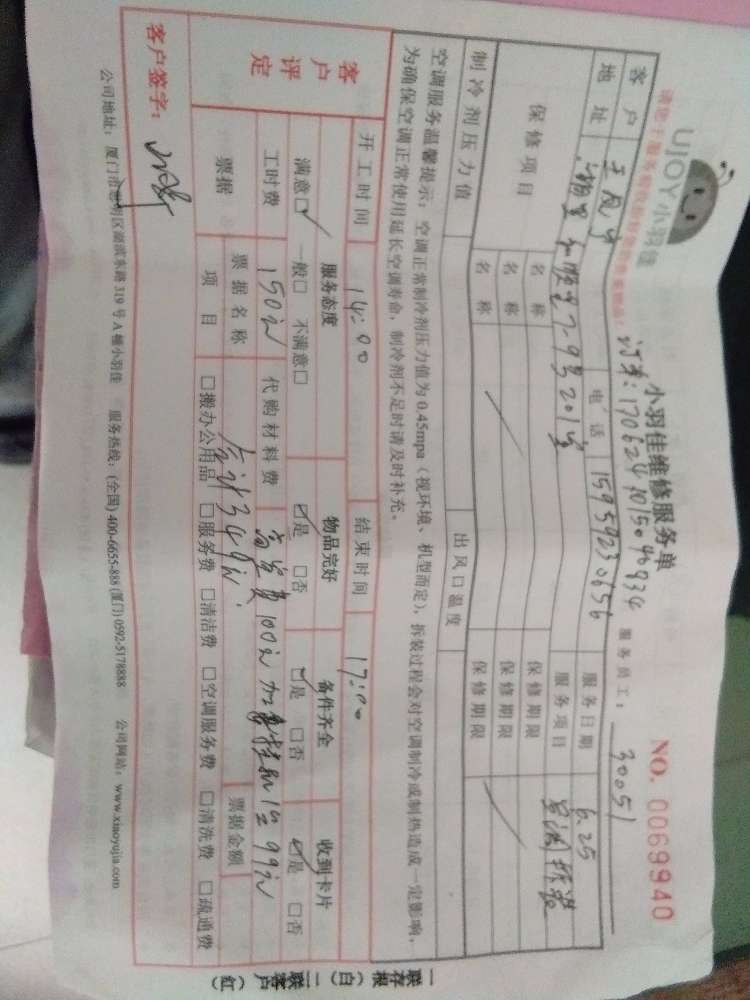 UJOY小羽佳
小羽佳维修服务单
NO. 0069940
订单:17062410150
服务员工: 30051
客户
电话 15959230656
服务日期 6.25
地址
7-9号201室
服务项目 空调拆装
保修项目
名称
保修期限
名称
保修期限
名称
保修期限
制冷剂压力值
出风口温度
空调服务温馨提示:空调正常制冷剂压力值为0.45mpa(视环境、机型而定),拆装过程会对空调制冷或制热造成一定影响,
为确保空调正常使用延长空调寿命,制冷剂不足时请及时补充。
开工时间 14:00 结束时间 17:00
客户评定
服务态度 物品完好 备件齐全 收到卡片
满意□ 一般□ 不满意□ □是 □否 □是 □否 □是 □否
工时费 150元 代购材料费 高空费100元 加 1 99元
票据 票据名称 合计349元 票据金额
项目 □搬办公用品 □服务费 □清洁费 □空调服务费 □清洗费 □疏通费
客户签字:
公司地址:厦门市思明区湖滨东路319号A幢小羽佳 服务热线:(全国)400-6655-888 (厦门)0592-5178888 公司网站:www.xiaoyujia.com
一联存根(白) 二联客户(红)